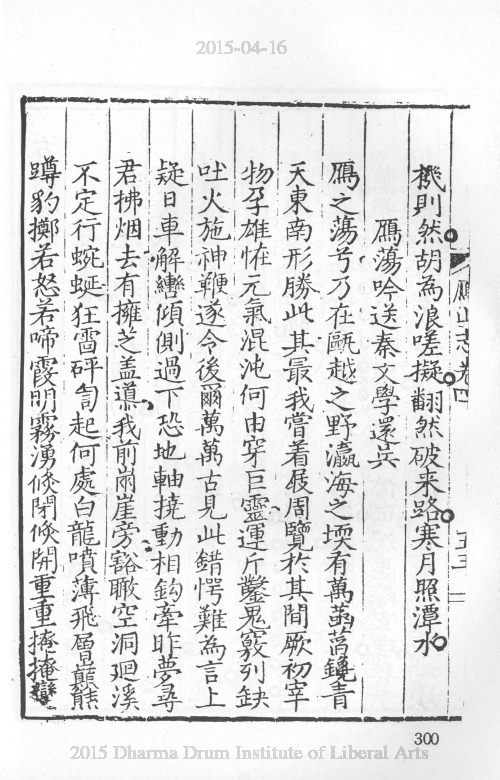 2015-04-16
機則然胡為浪嗟擬翻然破來路寒月照潭水
鴈山志卷四
鴈蕩吟送秦文學還吳
鴈之蕩兮乃在甌越之野瀛海之堧有萬菡萏鐃青
天東南形勝此其最我嘗着屐周覽於其間厥初宰
物孕雄恠元氣混沌何由穿巨靈運斤鑿鬼竅列缺
吐火施神鞭遂令後爾萬萬古見此錯愕難為言上
疑日車解轡傾側過下恐地軸撓動相鈎牽昨夢尋
君拂烟去有擁之盖導我前崩崖旁谿瞰空洞廻溪
不定行蜿蜒狂雷砰訇起何處白龍噴薄飛層巔熊
蹲豹擲若怒若啼霞明霧湧倏閉倏開重重掩掩巒
300
2015 Dharma Drum Institute of Liberal Arts